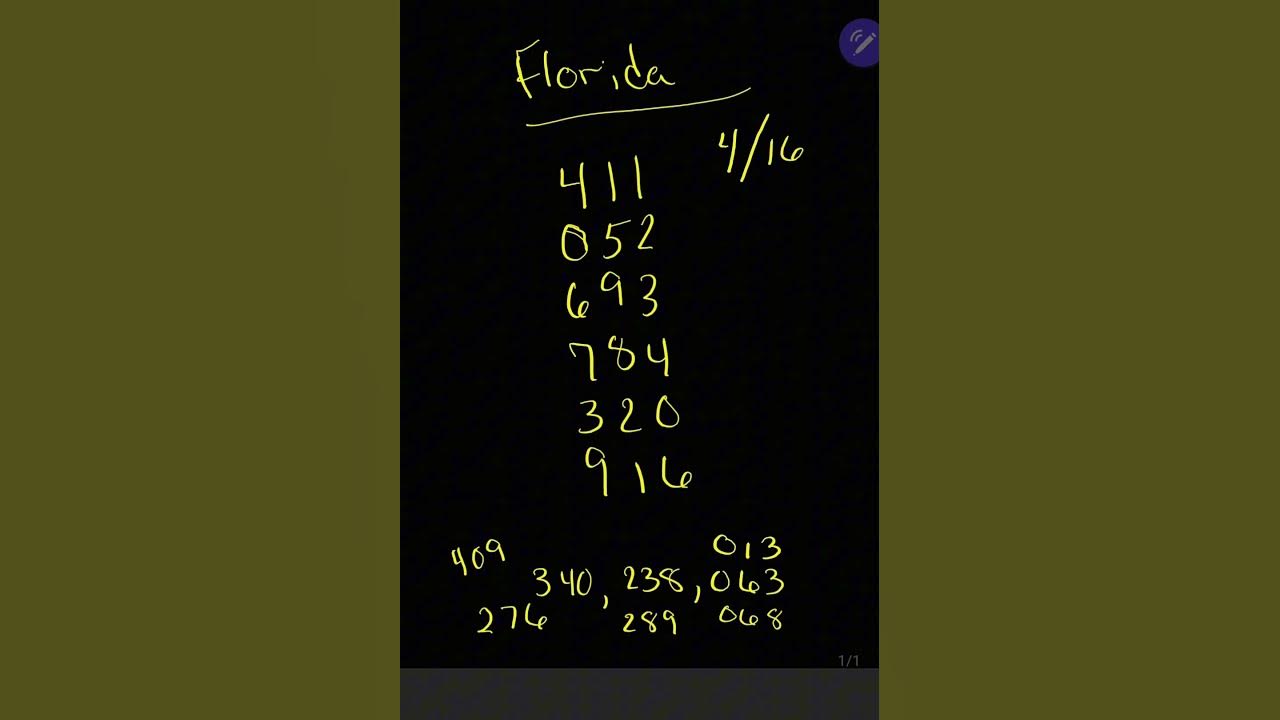 Florida
4/16
411
052
693
784
320
916
013
409
340, 238, 063
276 289 068
1/1